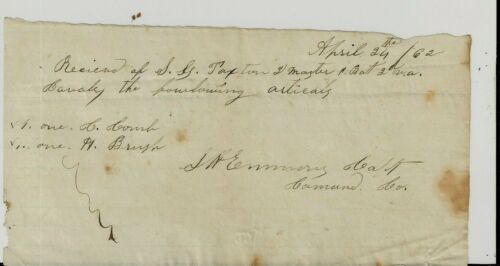 April 24th /62
Reciend of S. G. Paxton 2 Master 1. Bat 2d Va.
Cavaly the fowlowing articals
√1. one. C. Comb
√1.. one. H. Brush
Capt
Comand. Co.